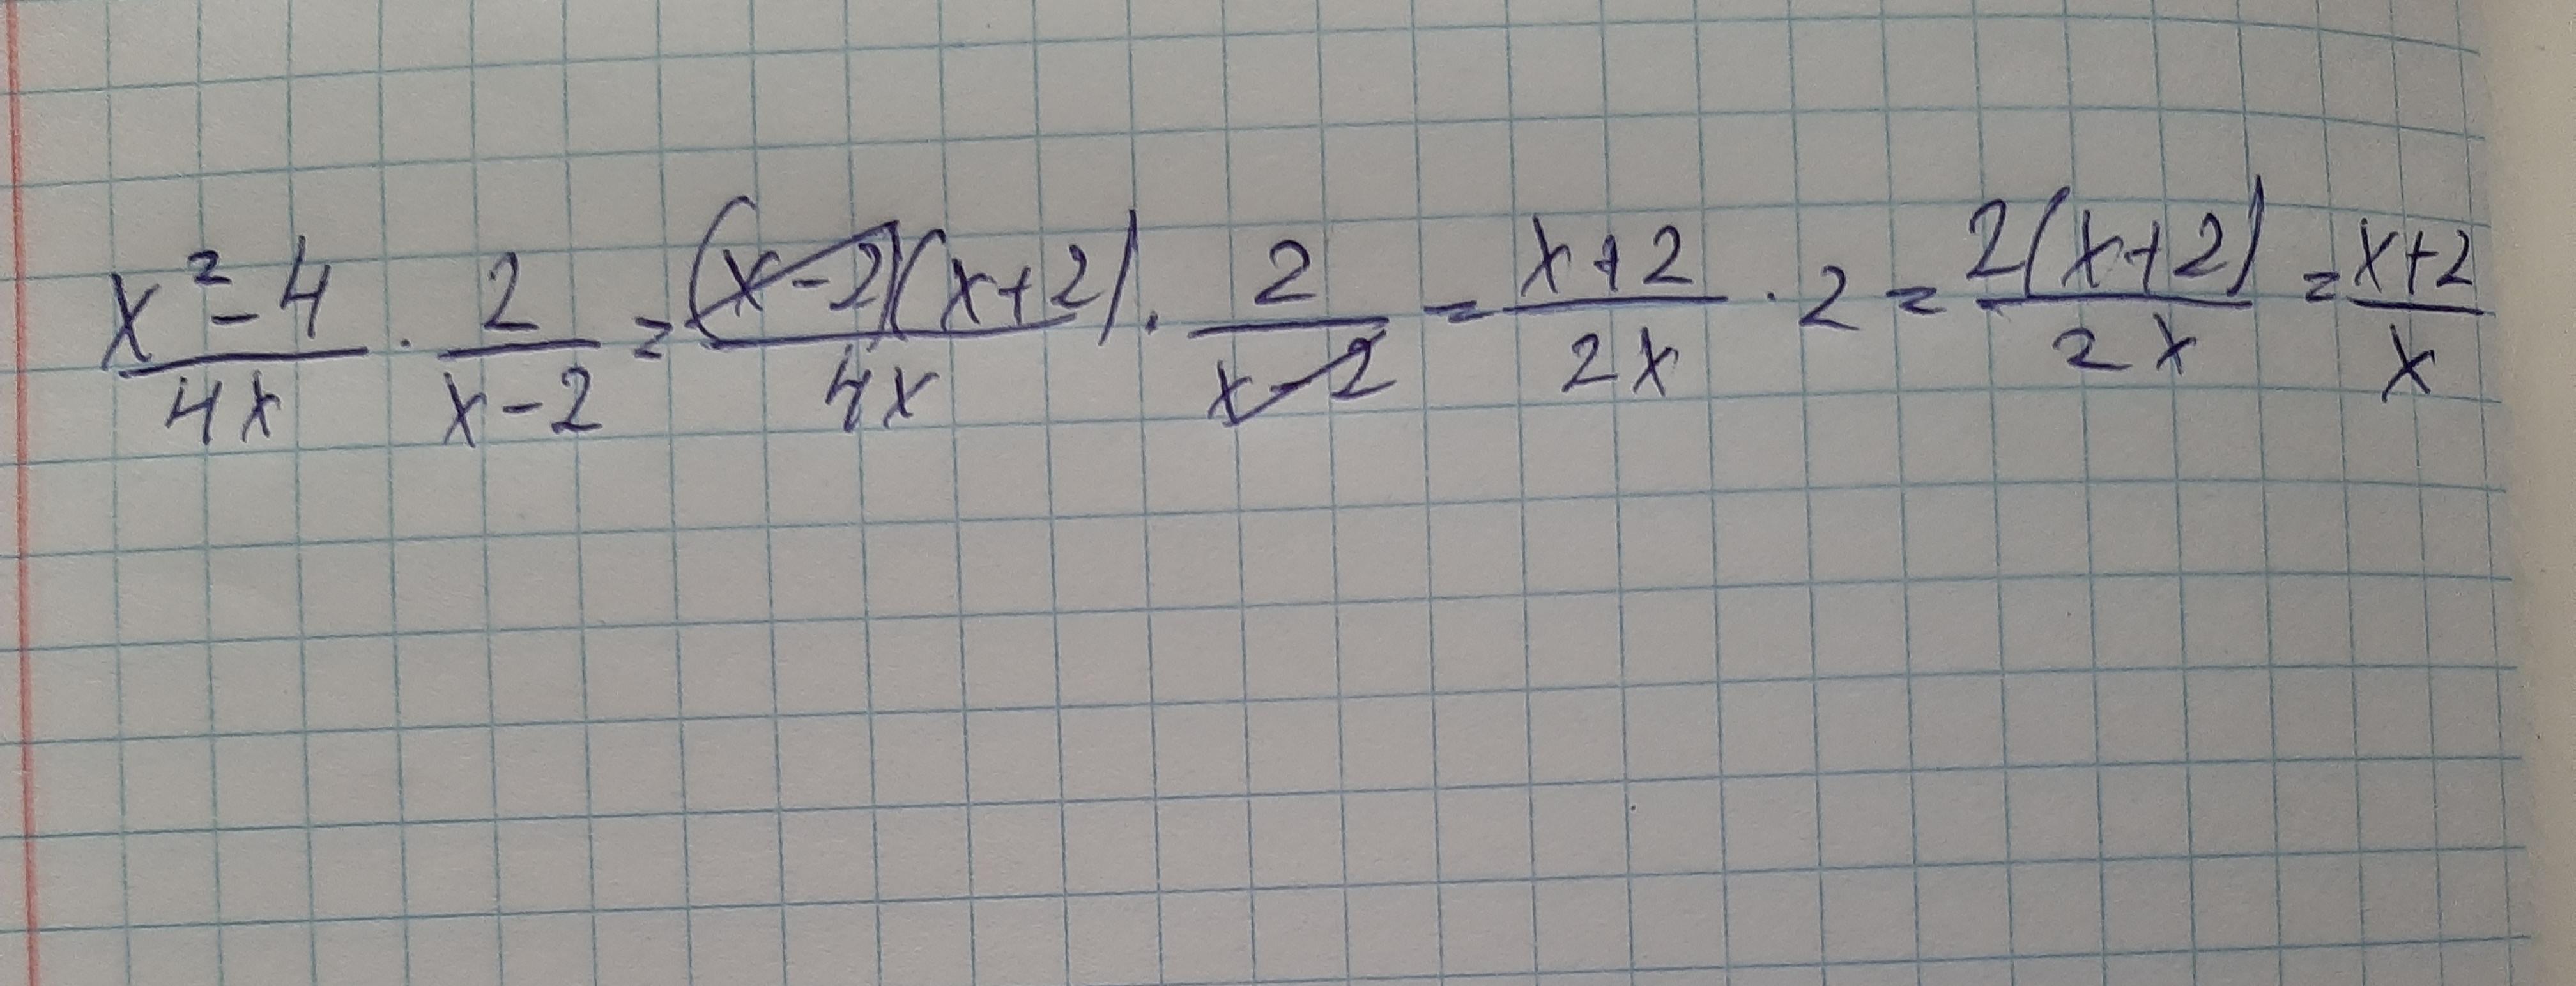 (x²-4)/(4x) · 2/(x-2) = ((x-2)(x+2))/(4x) · 2/(x-2) = (x+2)/(2x) · 2 = (2(x+2))/(2x) = (x+2)/x